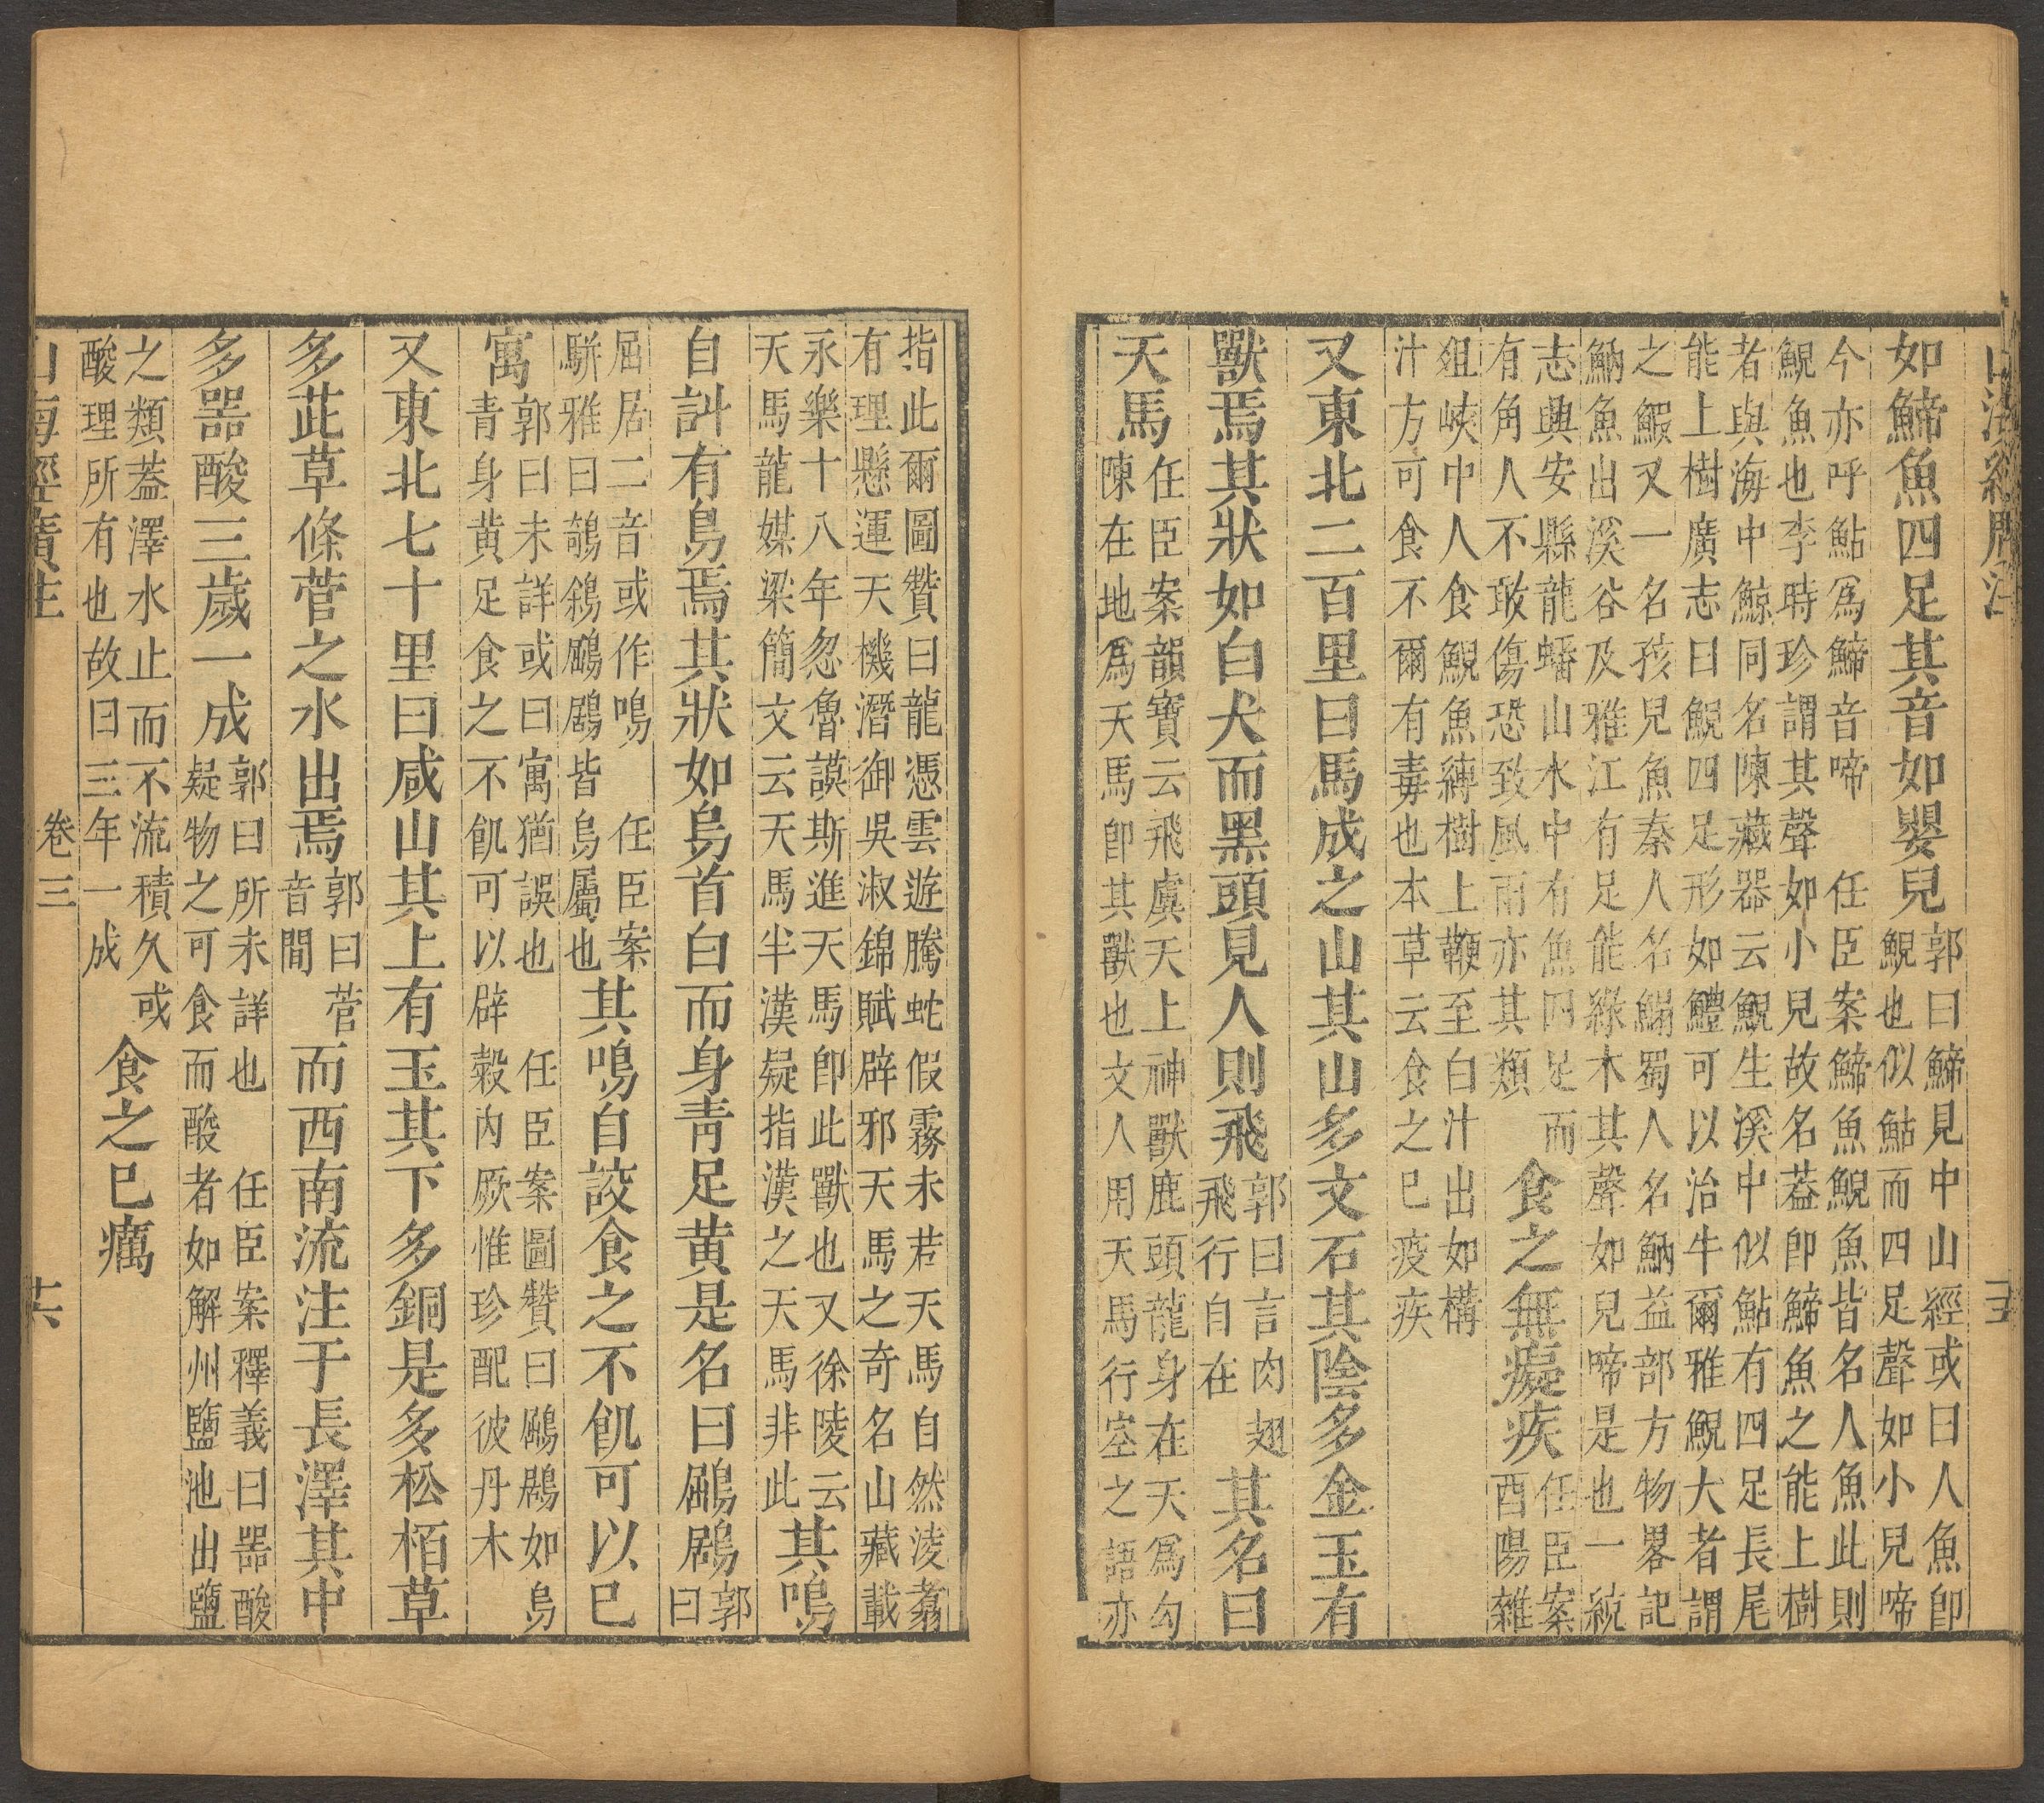 如鯑魚四足其音如嬰兒郭曰鯑見中山經或曰人魚卽
鯢也似鮎而四足聲如小兒啼
今亦呼鮎爲鯑音啼 任臣案鯑魚鯢魚皆名人魚此則
鯢魚也李時珍謂其聲如小兒故名葢卽鯑魚之能上樹
者與海中鯨同名陳藏器云鯢生溪中似鮎有四足長尾
能上樹廣志曰鯢四足形如鱧可以治牛爾雅鯢大者謂
之鰕又一名孩兒魚秦人名鰨蜀人名魶益部方物畧記
魶魚出溪谷及雅江有足能緣木其聲如兒啼是也一統
志興安縣龍蟠山水中有魚四足而
有角人不敢傷恐致風雨亦其類
食之無癡疾任臣案
酉陽雜
俎峽中人食鯢魚縛樹上鞭至白汁出如構
汁方可食不爾有毒也本草云食之已疫疾
又東北二百里曰馬成之山其山多文石其陰多金玉有
獸焉其狀如白犬而黑頭見人則飛郭曰言肉翅
飛行自在
其名曰
天馬任臣案韻寶云飛虞天上神獸鹿頭龍身在天爲勾
陳在地爲天馬卽其獸也文人用天馬行空之語亦
指此爾圖贊曰龍憑雲遊騰蛇假霧未若天馬自然淩翥
有理懸運天機潛御吳淑錦賦辟邪天馬之奇名山藏載
永樂十八年忽魯謨斯進天馬卽此獸也又徐陵云
天馬龍媒梁簡文云天馬半漢疑指漢之天馬非此
其鳴
自訆有鳥焉其狀如烏首白而身靑足黃是名曰鶌鶋郭
曰
屈居二音或作鳴 任臣案
駢雅曰鶺鵴鶌鶋皆鳥屬也
其鳴自詨食之不飢可以已
寓郭曰未詳或曰寓猶誤也 任臣案圖贊曰鶌鶋如烏
青身黃足食之不飢可以辟穀內厥惟珍配彼丹木
又東北七十里曰咸山其上有玉其下多銅是多松栢草
多茈草條菅之水出焉郭曰菅
音間
而西南流注于長澤其中
多器酸三歲一成郭曰所未詳也 任臣案釋義曰器酸
疑物之可食而酸者如解州鹽池出鹽
之類葢澤水止而不流積久或
酸理所有也故曰三年一成
食之已癘
山海經廣注 卷三 十六